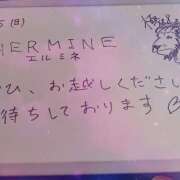 5 (日)
HERMINE
エルミネ
ひ、お越しくださし
待ちしております